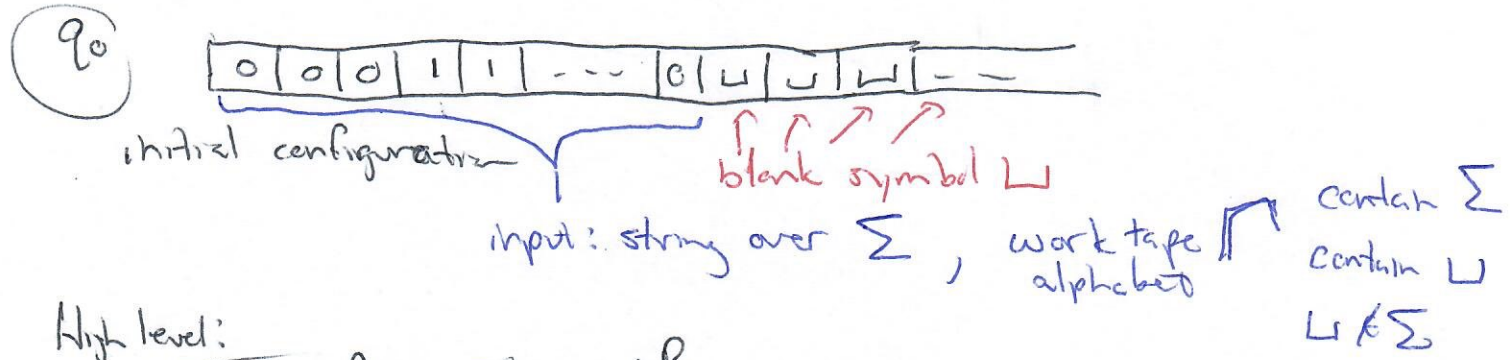 q₀
0 0 0 1 1 --- 0 ⊔ ⊔ ⊔ --
initial configuration
blank symbol ⊔
input: string over Σ, work tape alphabet Γ
contain Σ
contain ⊔
⊔ ∉ Σ
High level: